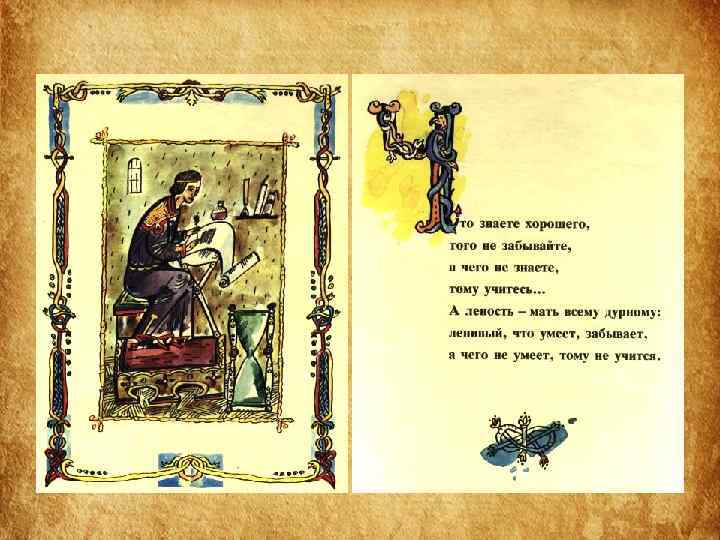 Что знаете хорошего,
того не забывайте,
а чего не знаете,
тому учитесь...
А леность – мать всему дурному:
ленивый, что умеет, забывает,
а чего не умеет, тому не учится.